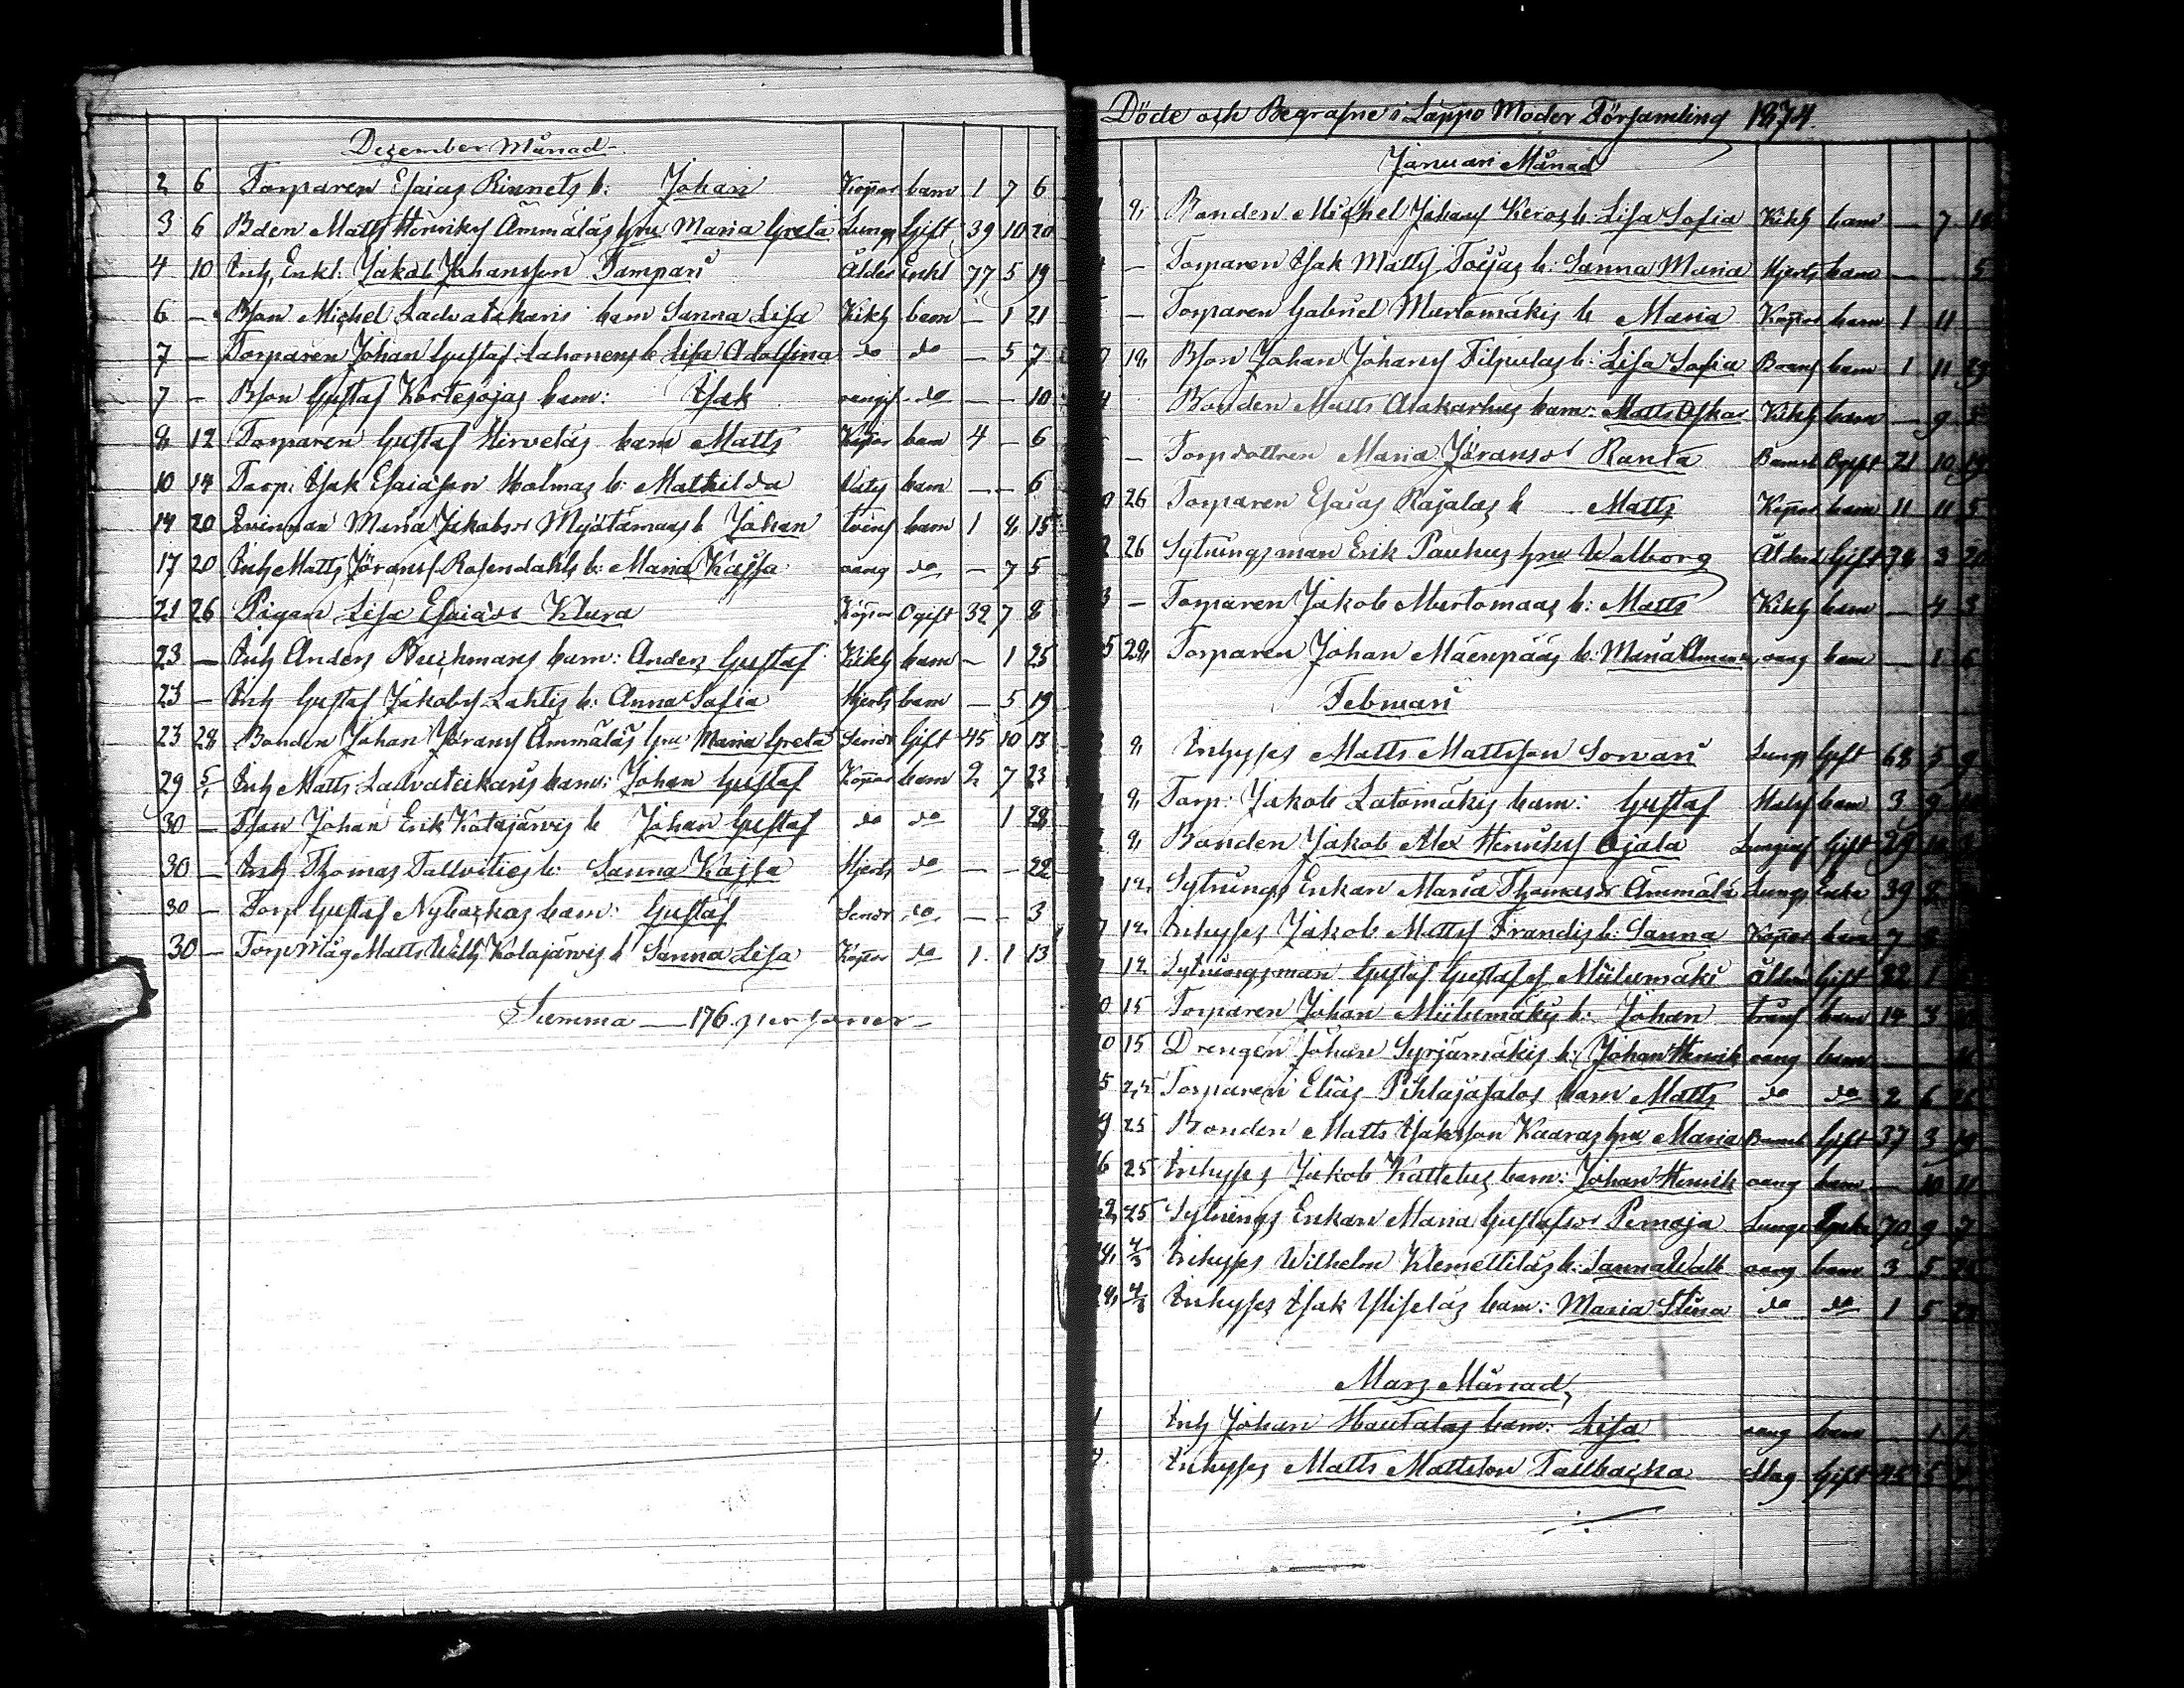 Dezember Månad
2 6 Torparen Esaias Rinnets b: Johan Koppor barn 1 7 6
3 6 Bden Matts Henriks Ämmäläs hru Maria Greta Lungs Gift 39 10 20
4 10 Inh, Enkl: Jakob Johansson Tampari Ålder Enkl 77 5 19
6 — Bson Michel Ladvatakaris barn Sanna Lisa Kikh barn — 1 21
7 — Torparen Johan Gustaf Lahonens b Lisa Adolfina do do — 5 7
7 — Bson Gustaf Kortesojas barn: Isak oangif do — — 10
8 12 Torparen Gustaf Hirveläs barn Matts Koppor barn 4 — 6
10 14 Torp: Isak Esaiasson Holmas b: Mathilda barn — — 6
14 20 Qvinnan Maria Jakobsdr Myötämaas b Johan barn 1 8 15
17 20 Inh Matts Jöransf Rosendahls b: Maria Kajsa oang do — 7 5
21 26 Pigan Lisa Esaiasdr Klura Koppor Ogift 32 7 8
23 — Inh Anders Buchmans barn: Anders Gustaf Kikh barn — 1 25
23 — Inh Gustaf Jakobsf Lahtis b: Anna Sofia Hjerts barn — 5 19
23 28 Bonden Johan Jöransf Ämmäläs hru Maria Greta Gift 45 10 13
29 5/1 Inh Matts Ladvateikaris barn: Johan Gustaf Koppor barn 2 7 23
30 — Johan Erik Katajärvis b Johan Gustaf do do 1 28
30 — Inh Thomas Tallvities b: Sanna Kajsa Hjerts do — — 22
30 — Torp Gustaf Nybackas barn: Gustaf do — — 3
30 — Torp Måg Matts Wilh Katajärvis b Sanna Lisa Koppor do 1 1 13
Summa — 176 personer —
Döde och Begrafne i Lappo Moder Församling 1874.
Januari Månad
9, Bonden Michel Johansf Keros b: Lisa Sofia Kikh barn — 7
— Torparen Isak Matts Toijas b: Sanna Maria Hjerts barn — — 5
— Torparen Gabriel Murtomäkis b Maria Koppor barn 1 11
18, Bson Johan Johansf Filpulas b: Lisa Sofia barn 1 11 29
Bonden Matts Alakarhus barn: Matts Oskar Kikh barn — 9
— Torpdottren Maria Jöransdr Ranta Ogift 21 10 19
26 Torparen Esaias Rajalas b Matts Koppor barn 11 11 5
26 Sytningsman Erik Pauhus hru Walborg Ålderd Gift 3 20
— Torparen Jakob Murtomaas b: Matts Kikh barn — 4 3
28, Torparen Johan Mäenpääs b: Maria oang barn — 1 6
Februari
9, Inhyses Matts Mattsson Sorvari Lungs Gift 68 5 9
9, Torp: Jakob Latomäkis barn: Gustaf barn 3 9
9, Bonden Jakob Alex Henriksf Ojala Gift 29 10
12, Sytnings Enkan Maria Thomasdr Ämmälä Lungs Enka 39 8
12, Inhyses Jakob Mattsf Frandis b: Sanna Koppor barn 7
12 Sytningsman Gustaf Gustafsf Miilumäki Ålderd Gift 82 1
15 Torparen Johan Miilumäkis b: Johan barn 14 3
15 Drengen Johan Syrjämäkis b: Johan Henrik oang barn —
25 Torparen Elias Pihlajasalos barn Matts do do 2 6
25 Bonden Matts Isaksson Kaaras hru Maria Gift 37 3
25 Inhyses Jakob Kattelus barn: Johan Henrik oang barn — 10
25 Sytnings Enkan Maria Gustafsdr Pernaja Lungs Enka 70 9 7
4/3 Inhyses Wilhelm Klemettiläs b: Sanna Walb oang barn 3 5
4/3 Inhyses Isak Yliseläs barn: Maria Stina do do 1 5
Mars Månad
Inh Johan Hautalas barn: Lisa oang barn — 1
Inhyses Matts Mattsson Tallbacka Slag Gift 5